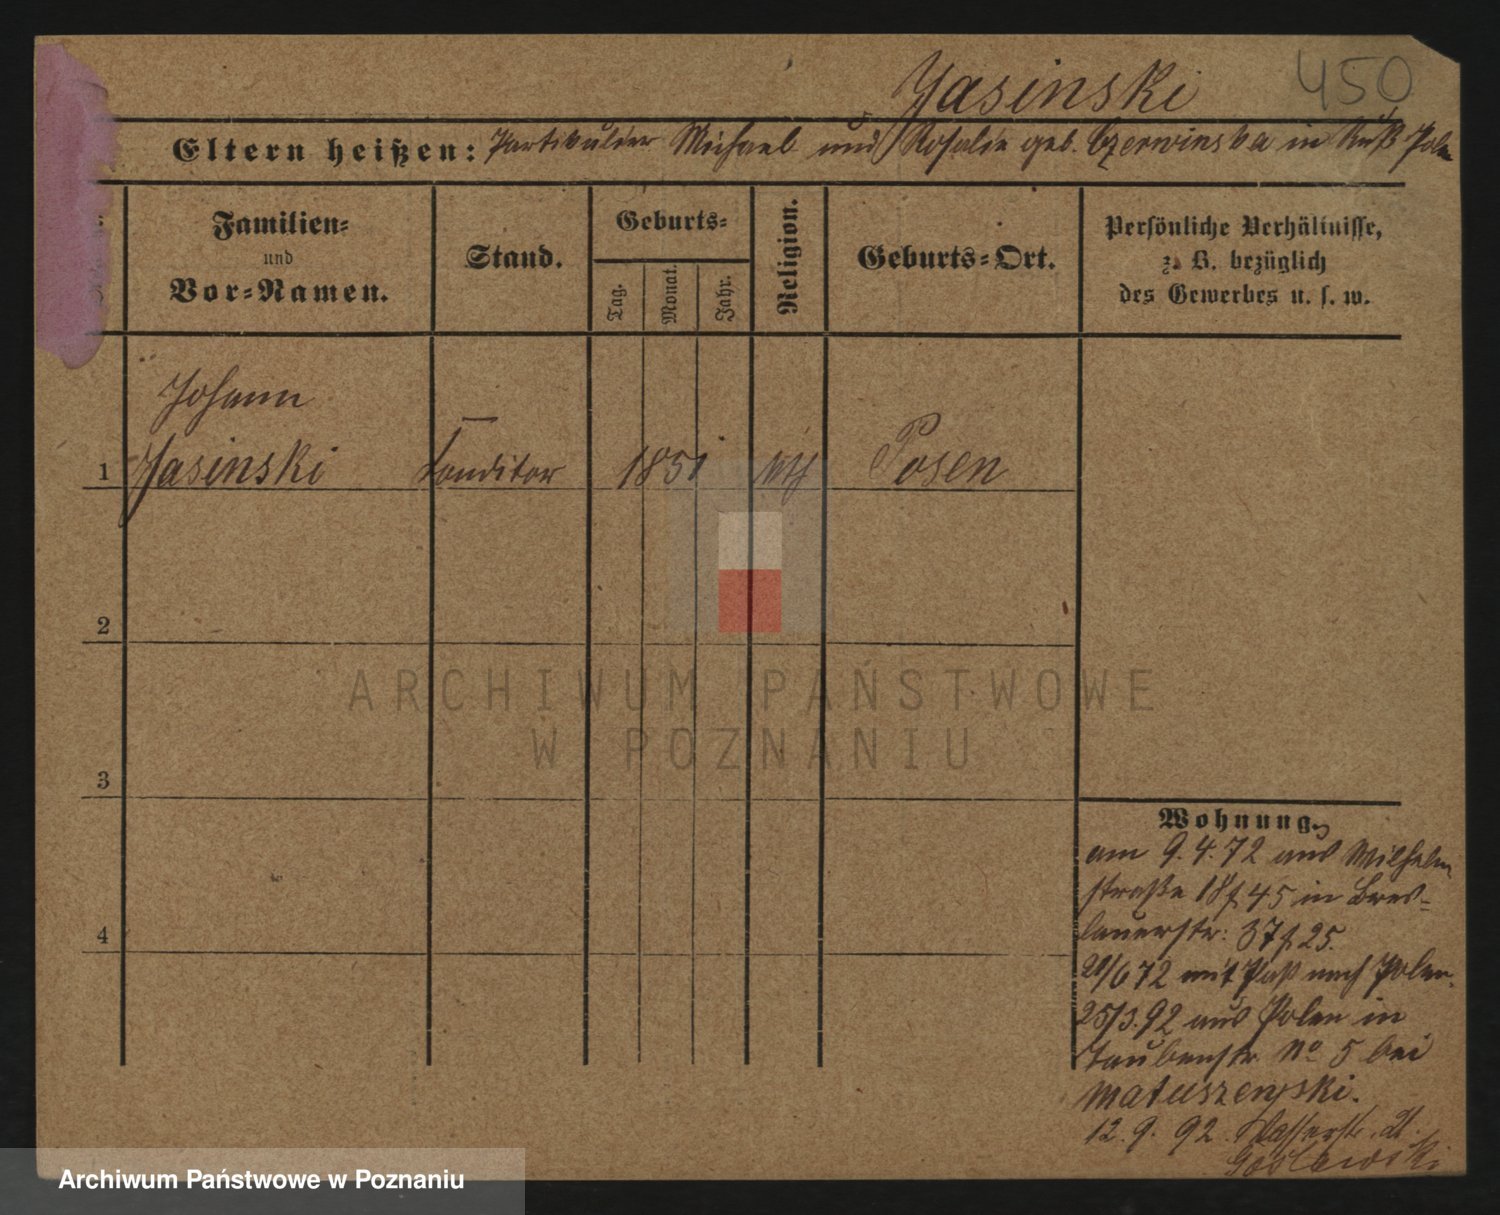 Jasinski 450
Eltern heißen: Partikulier Michael und Rosalie geb. Czerwinska in Russ Polen
Familien-
und
Vor-Namen.
Stand.
Geburts-
Tag.
Monat.
Jahr.
Religion.
Geburts-Ort.
Persönliche Verhältnisse,
z. B. bezüglich
des Gewerbes u. s. w.
Johann
1 Jasinski Conditor 1851 Posen
2
3
4
ARCHIWUM PAŃSTWOWE
W POZNANIU
Wohnung.
am 9.4.72 aus Wilhelm
straße 18 f 45 in Bres-
lauerstr: 37 f 25.
20/6 72 mit Paß nach Polen.
25/3.92 aus Polen in
Taubenstr. No 5 bei
Matuszewski.
12.9.92. Wasserstr. 21.
Goslawski
Archiwum Państwowe w Poznaniu